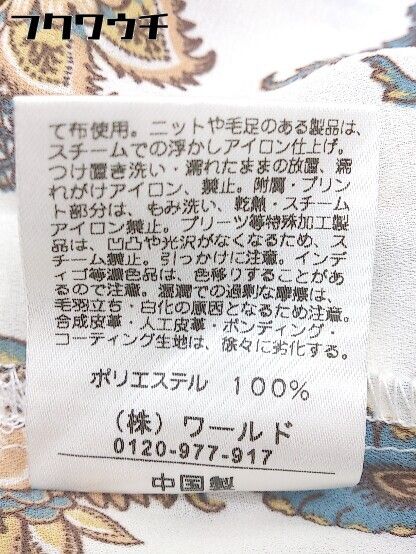 フクワウチ
て布使用。ニットや毛足のある製品は、
スチームでの浮かしアイロン仕上げ。
つけ置き洗い・濡れたままの放置、濡
れがけアイロン、禁止。附属・プリン
ト部分は、もみ洗い、乾燥・スチーム
アイロン禁止。プリーツ等特殊加工製
品は、凹凸や光沢がなくなるため、ス
チーム禁止。引っかけに注意。インデ
ィゴ等濃色品は、色移りすることがあ
るので注意。湿潤での過剰な摩擦は、
毛羽立ち・白化の原因となるため注意。
合成皮革・人工皮革・ボンディング・
コーティング生地は、徐々に劣化する。
ポリエステル 100%
(株) ワールド
0120-977-917
中国製